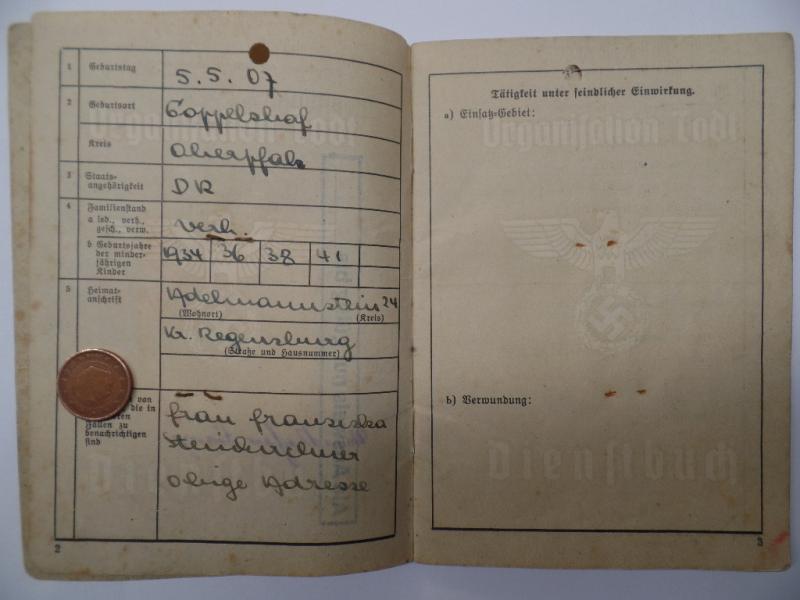 1 Geburtstag
5.5.07
2 Geburtsort
Goppelshof
Kreis
Oberpfalz
3 Staats-
angehörigkeit
DR
4 Familienstand
a led., verh.,
gesch., verw.
verh.
b Geburtsjahre
der minder-
jährigen
Kinder
1934 36 38 41
5 Heimat-
anschrift
Adelmannstein 24
(Wohnort) (Kreis)
Kr. Regensburg
(Straße und Hausnummer)
von
die in
Fällen zu
benachrichtigen
sind
Frau Franziska
obige Adresse
2
Tätigkeit unter feindlicher Einwirkung.
a) Einsatz-Gebiet:
Organisation Todt
b) Verwundung:
Dienstbuch
3